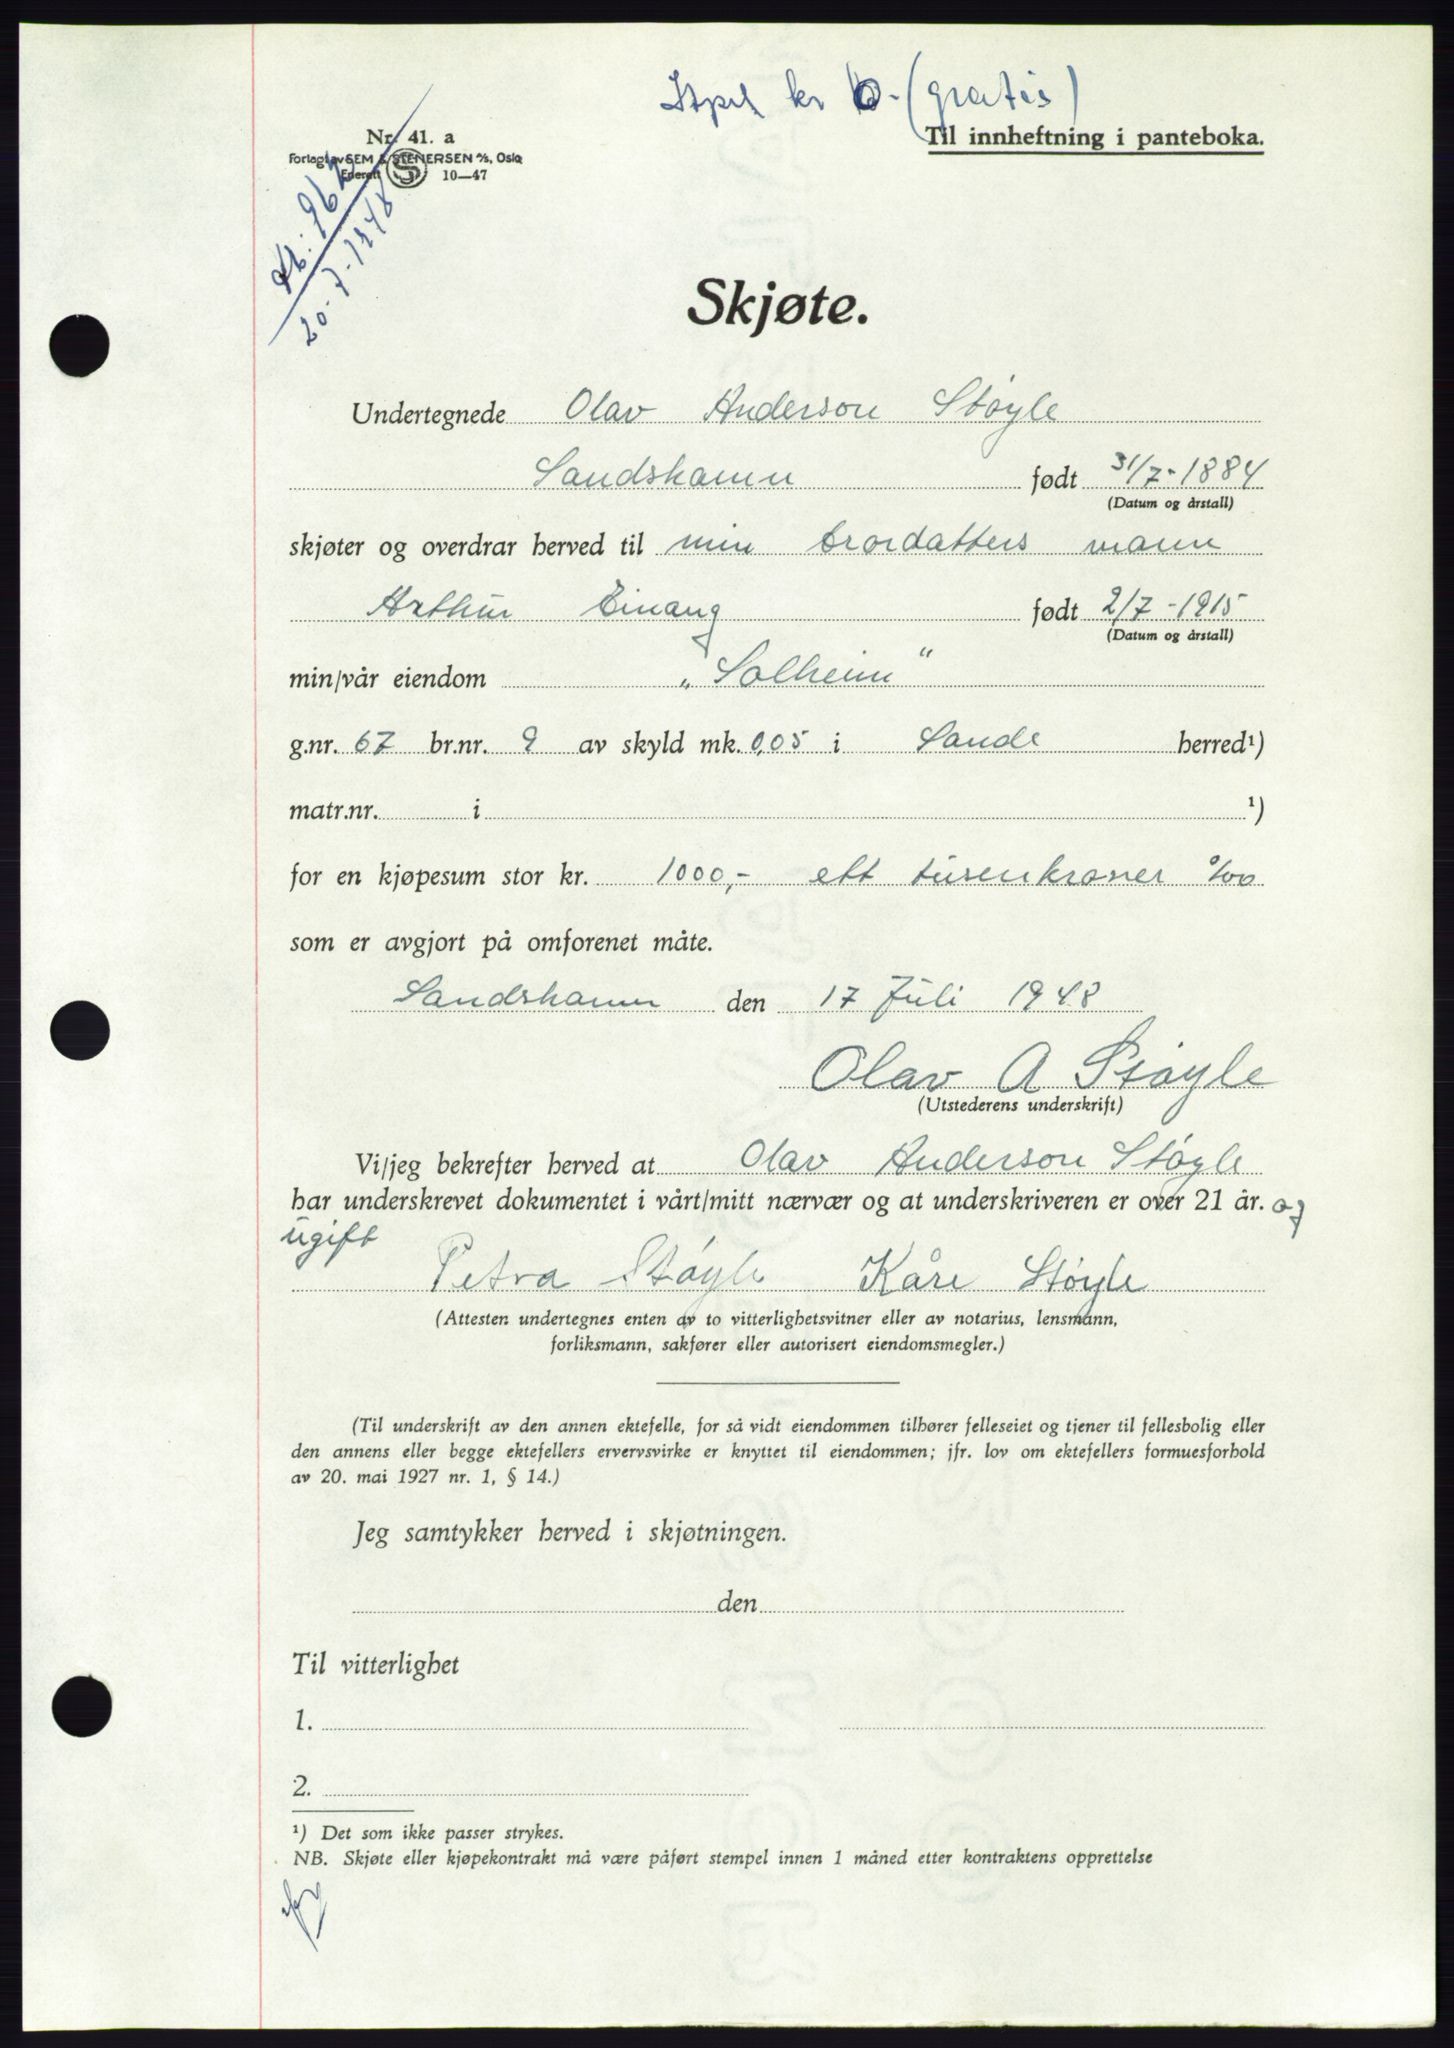 Stpl kr 10.- (gratis)
Nr. 41. a
Til innheftning i panteboka.
Forlagt av SEM & STENERSEN A/S, Oslo
Enerett S 10—47
20-7-1948
Skjøte.
Undertegnede Olav Anderson Støyle
Sandshamn født 31/7-1884
(Datum og årstall)
skjøter og overdrar herved til min brordatters mann
Arthur Einang født 2/7-1915
(Datum og årstall)
min/vår eiendom „Solheim“
g.nr. 67 br.nr. 9 av skyld mk. 0,05 i Sande herred¹)
matr.nr. i ¹)
for en kjøpesum stor kr. 1000,- ett tusen kroner 0/00
som er avgjort på omforenet måte.
Sandshamn den 17 Juli 1948
Olav A Støyle
(Utstederens underskrift)
Vi/jeg bekrefter herved at Olav Anderson Støyle
har underskrevet dokumentet i vårt/mitt nærvær og at underskriveren er over 21 år. og
ugift
Petra Støyle Kåre Støyle
(Attesten undertegnes enten av to vitterlighetsvitner eller av notarius, lensmann,
forliksmann, sakfører eller autorisert eiendomsmegler.)
(Til underskrift av den annen ektefelle, for så vidt eiendommen tilhører felleseiet og tjener til fellesbolig eller
den annens eller begge ektefellers ervervsvirke er knyttet til eiendommen; jfr. lov om ektefellers formuesforhold
av 20. mai 1927 nr. 1, § 14.)
Jeg samtykker herved i skjøtningen.
den
Til vitterlighet
1.
2.
¹) Det som ikke passer strykes.
NB. Skjøte eller kjøpekontrakt må være påført stempel innen 1 måned etter kontraktens opprettelse